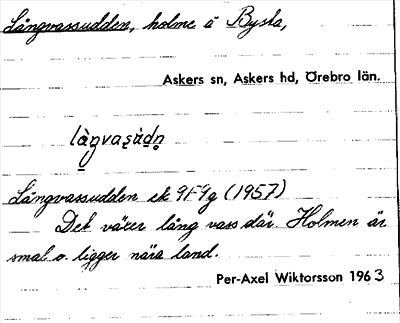 Långvassudden, holme å Bysta,
Askers sn, Askers hd, Örebro län.
làŋvasu̇dn̥
Långvassudden ek 9F9g (1957)
Det växer lång vass där. Holmen är
smal o. ligger nära land.
Per-Axel Wiktorsson 1963